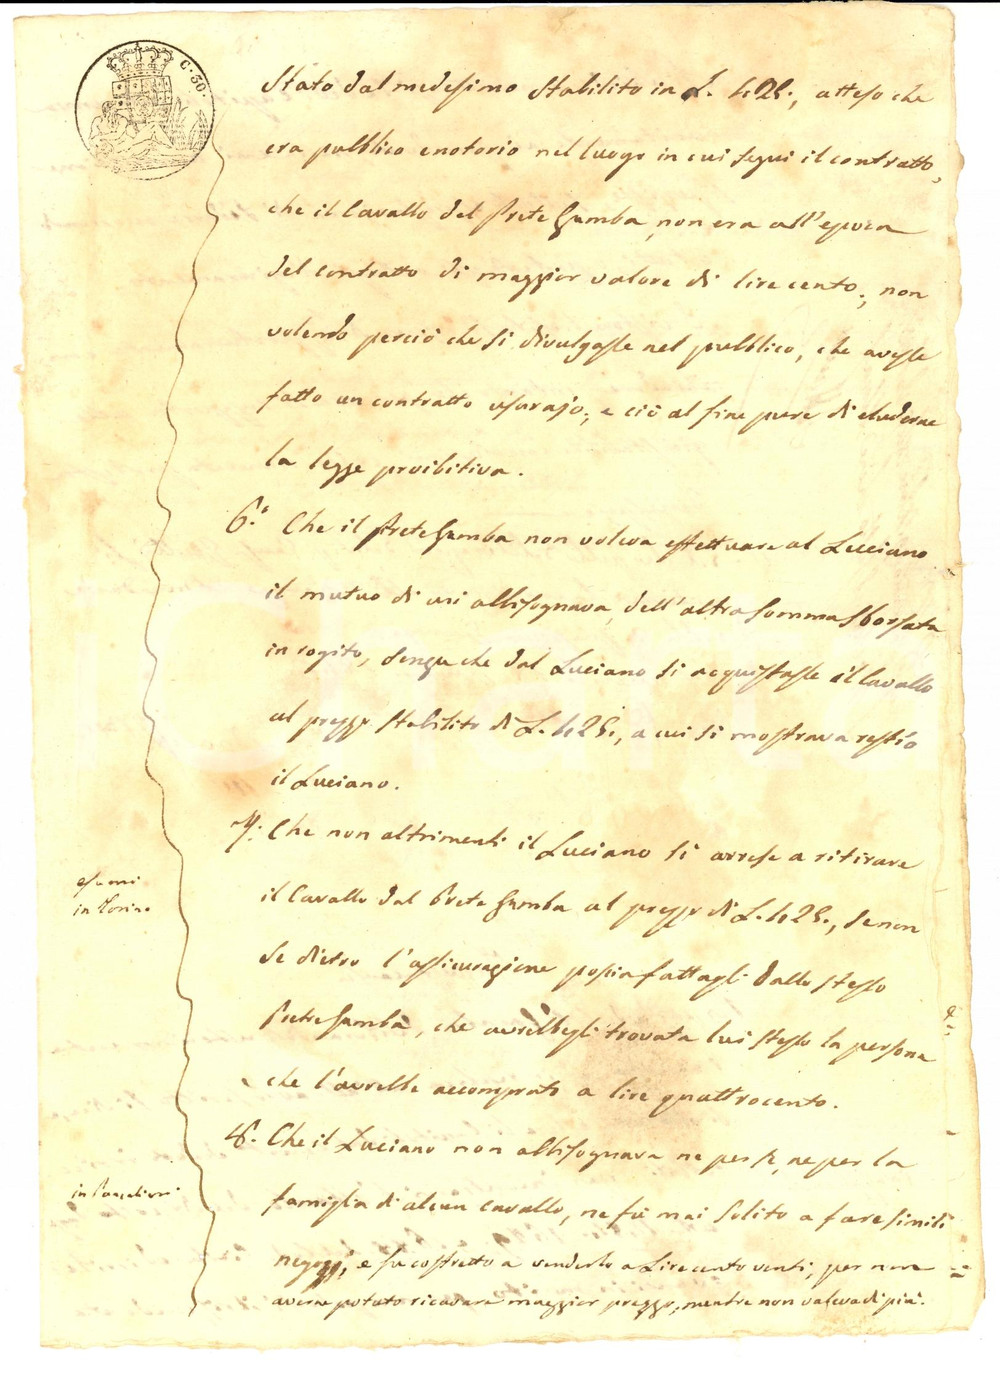 C. 50.
stato dal medesimo stabilito in L. 425., atteso che
era pubblico e notorio nel luogo in cui seguì il contratto,
che il Cavallo del Prete Gamba, non era all'epoca
del contratto di maggior valore di lire cento; non
volendo perciò che si divulgasse nel pubblico, che avesse
fatto un contratto usurajo; e ciò al fine pure di eluderne
la legge proibitiva.
6.° Che il Prete Gamba non voleva effettuare al Lucciano
il mutuo di cui abbisognava, dell'altra somma sborsata
in rogito, senza che dal Luciano si acquistasse il Cavallo
al prezzo stabilito di L. 425., a cui si mostrava restìo
il Luciano.
7.° Che non altrimenti il Luciano si arrese a ritirare
esami
in Torino
il Cavallo dal Prete Gamba al prezzo di L. 425., se non
se dietro l'assicurazione poscia fattagli dallo stesso
Prete Gamba, che avrebbegli trovata lui stesso la persona
che l'avrebbe accomprato a lire quattrocento.
8.° Che il Luciano non abbisognava ne per se, ne per la
in Pancalieri
famiglia di alcun cavallo, ne fù mai solito a fare simili
negozj, e fu costretto a venderlo a Lire cento venti, per non
averne potuto ricavare maggior prezzo, mentre non valeva di più.